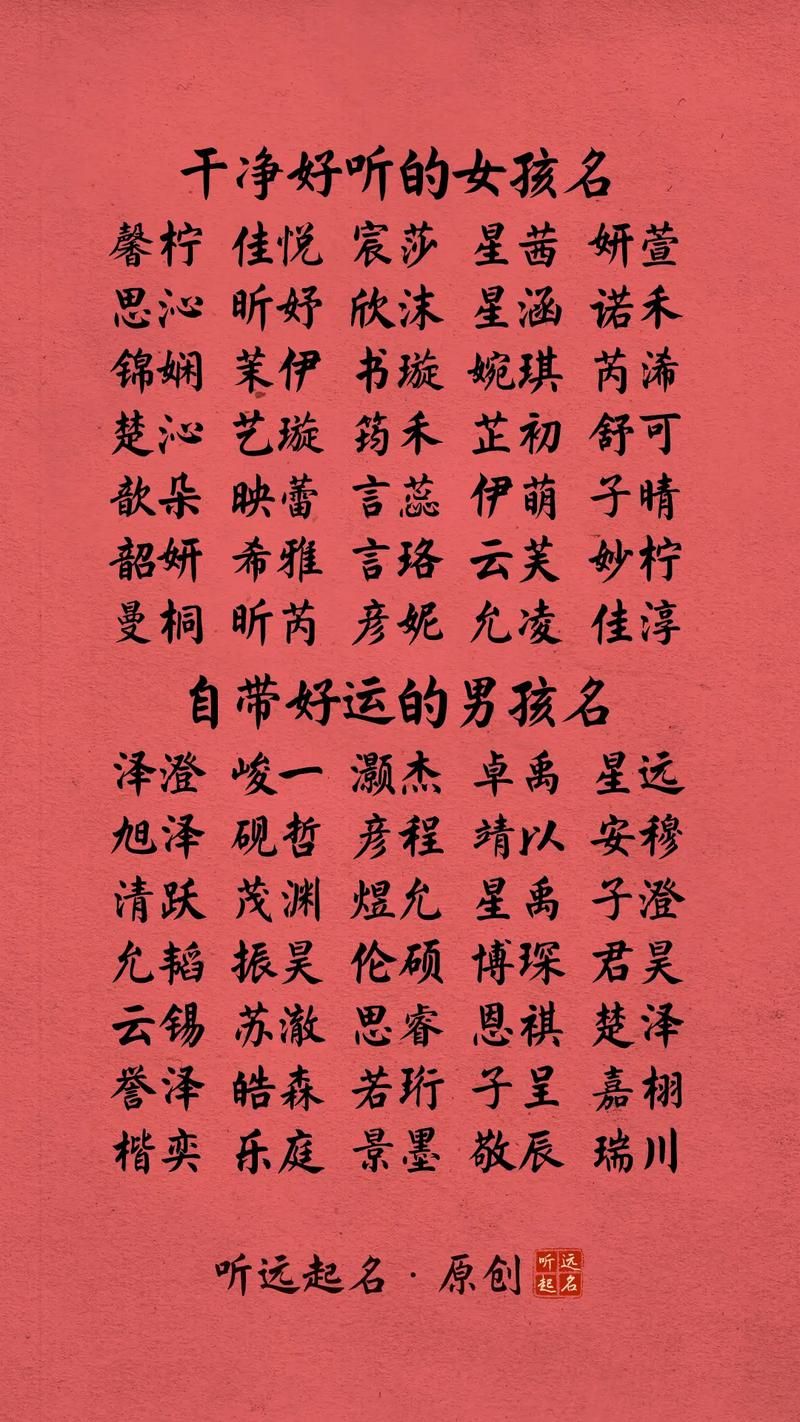 干净好听的女孩名
馨柠 佳悦 宸莎 星茜 妍萱
思沁 昕妤 欣沫 星涵 诺禾
锦娴 茉伊 书璇 婉琪 芮浠
楚沁 艺璇 筠禾 芷初 舒可
歆朵 映蕾 言蕊 伊萌 子晴
韶妍 希雅 言珞 云芙 妙柠
曼桐 昕芮 彦妮 允凌 佳淳
自带好运的男孩名
泽澄 峻一 灏杰 卓禹 星远
旭泽 砚哲 彦程 靖以 安穆
清跃 茂渊 煜允 星禹 子澄
允韬 振昊 伦硕 博琛 君昊
云锡 苏澈 思睿 恩祺 楚泽
誉泽 皓森 若珩 子呈 嘉栩
楷奕 乐庭 景墨 敬辰 瑞川
听远起名·原创
听远
起名